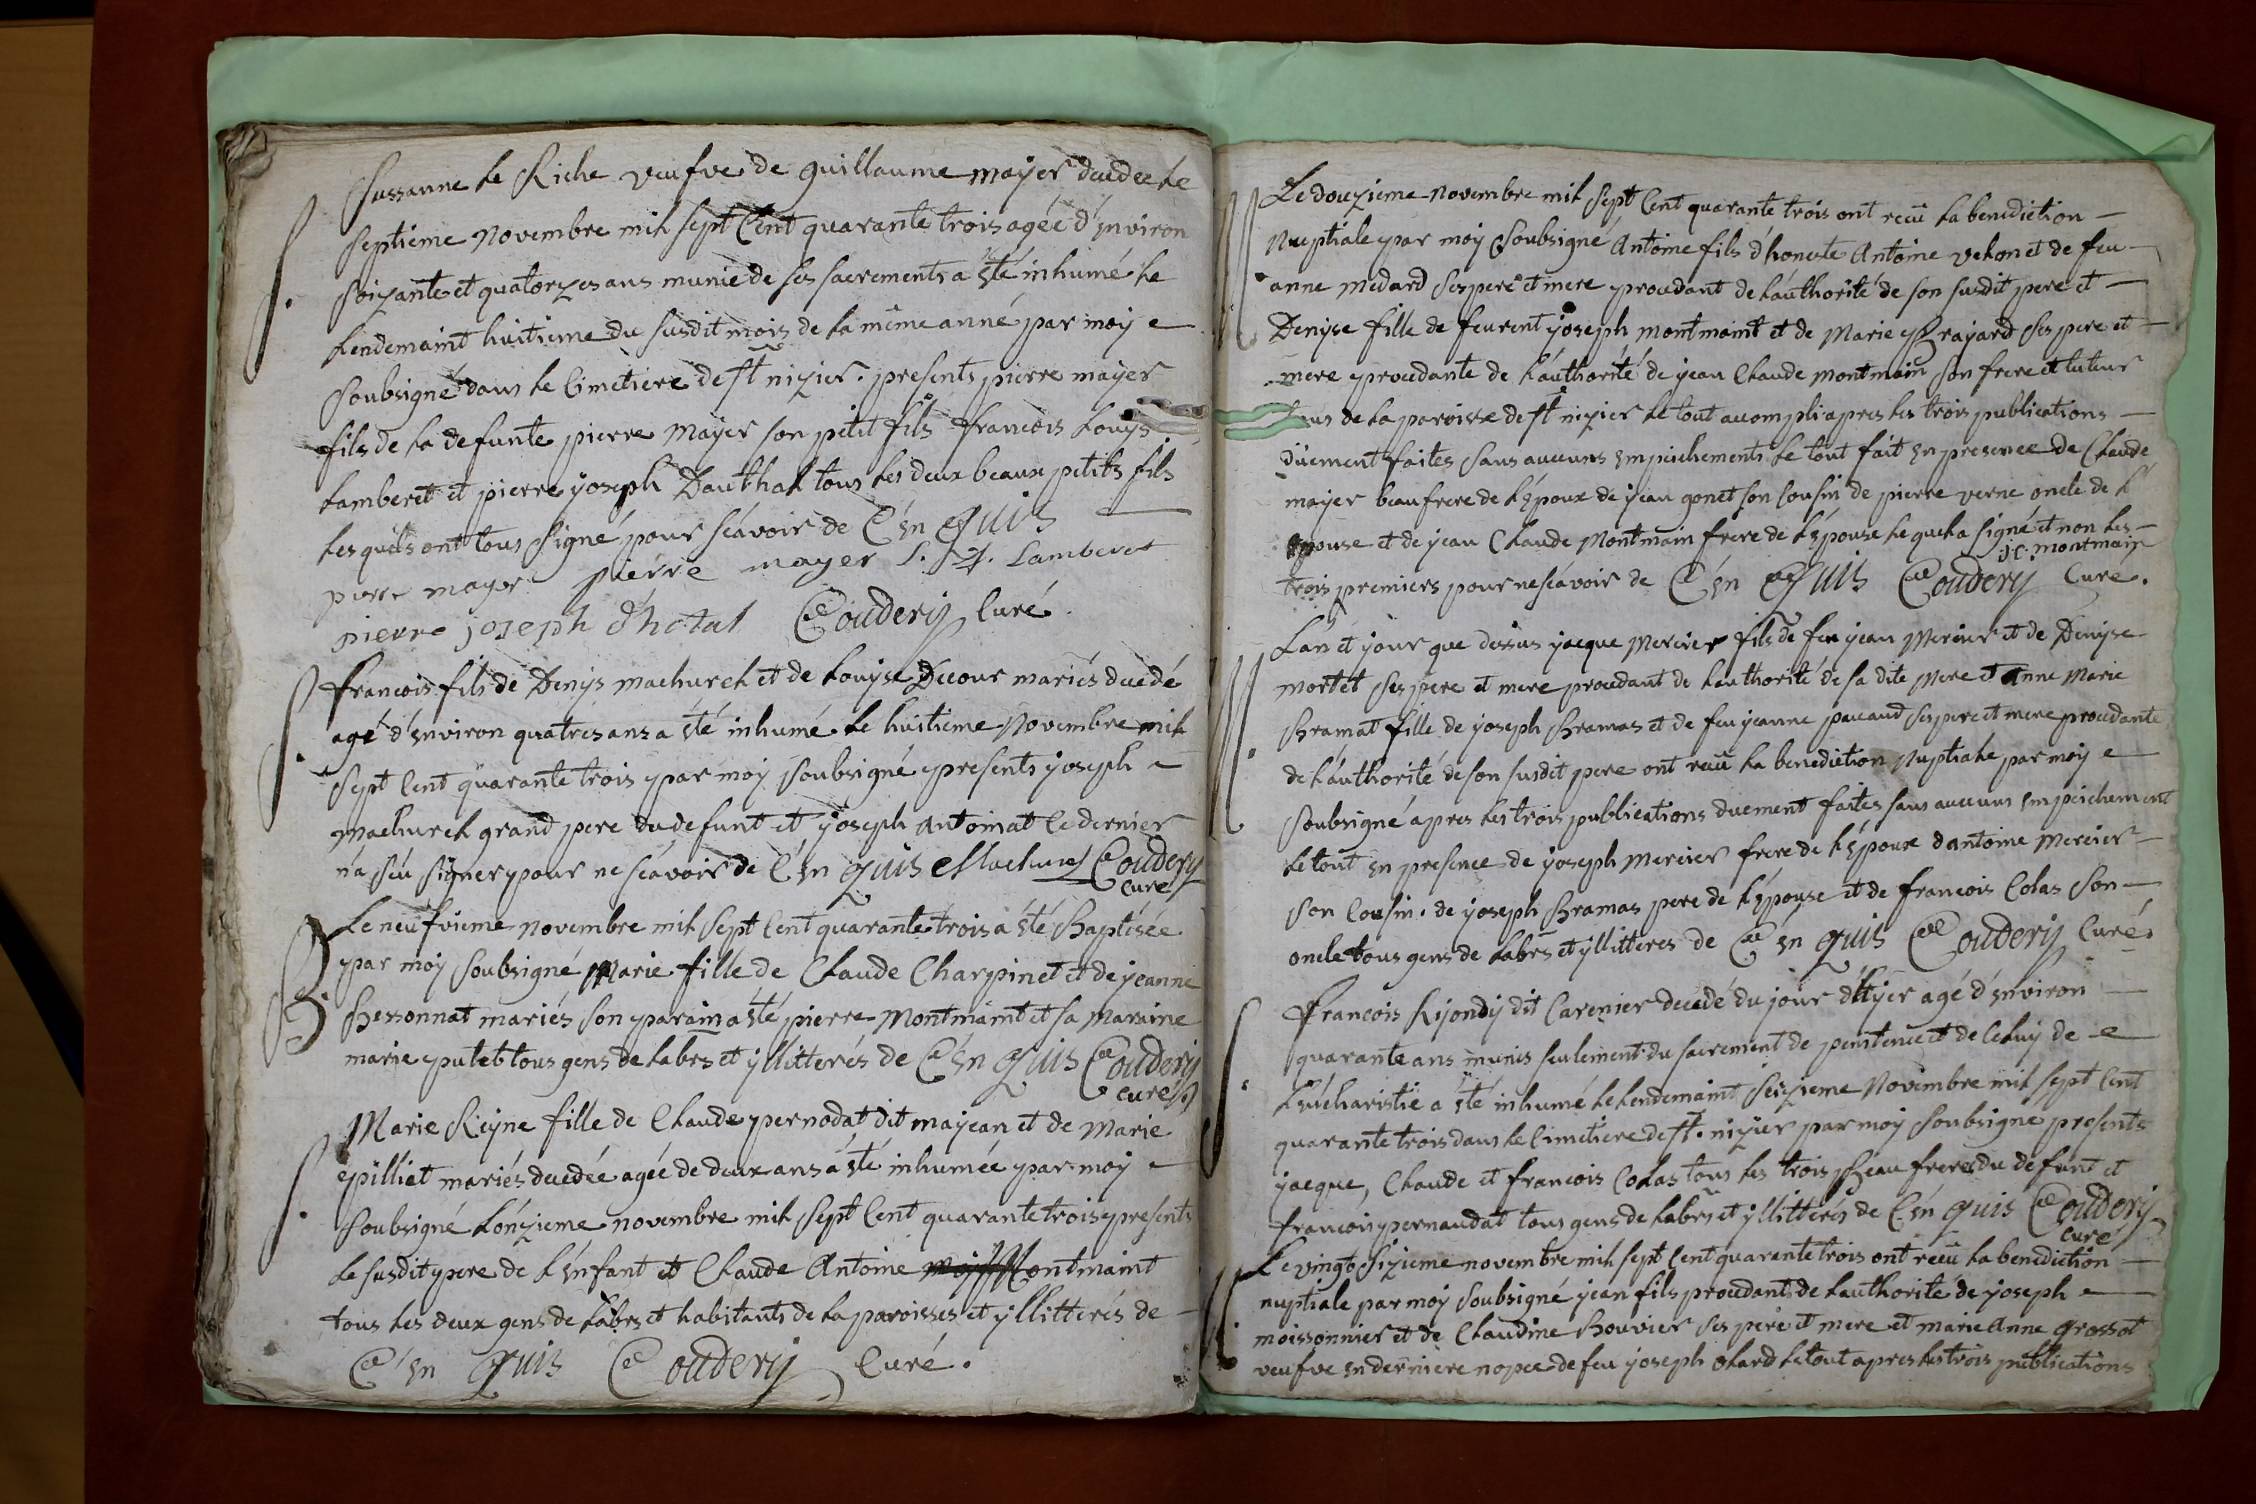 Sussanne le Riche veufve de guillaume mayer decedee le
septieme novembre mil sept Cent quarante trois agée d'environ
soixante et quatorzes ans munie de ses sacrements a été inhumé le
lendemaint huitieme du susdit mois de la même anné par moy
soubsigné dans le Cimetiere de st nizier. presents pierre mayer
fils de la defunte pierre mayer son petit fils francois Louys
Lamberet et pierre yoseph Dauthal tous les deux beaux petits fils
lesquels ont tous signé pour scavoir de C én quis
pierre mayer pierre mayer L. Lamberet
pierre joseph d'hotal Couderij Curé.
francois fils de Denys machurel et de Louyse Decour mariés decedé
agé d'environ quatres ans a été inhumé le huitieme novembre mil
sept Cent quarante trois par moy soubsigné presents yoseph
machurel grand pere du defunt et yoseph antoinat le dernier
n'a sçu signer pour ne scavoir de C én quis Machurel Couderij
Curé
S
S
B
S
Le neufvieme novembre mil sept Cent quarante trois a été baptisée
par moy soubsigné Marie fille de Claude Charpinet et de yeanne
bessonnat mariés son parain a été pierre montmaint et sa maraine
marie putet tous gens de labrs et yllitterés de C én quis Couderij
Curé
Marie Reyne fille de Claude pernodat dit mayean et de Marie
pilliet mariés decedée agée de deux ans a été inhumée par moy
soubsigné lónzieme novembre mil sept Cent quarante trois presents
le susdit pere de l'énfant et Claude Antoine Montmaint
tous les deux gens de labrs et habitants de la paroisses et yllitterés de
C én quis Couderij Curé.
Le douzieme novembre mil sept Cent quarante trois ont reçu la benediction
Nuptiale par moy soubsigné Antoine fils d'honeste Antoine vehon et de feu
anne medard ses pere et mere procedant de láuthorité de son susdit pere et
Denyse fille de feu rent yoseph montmaint et de Marie Brayard ses pere et
mere procedante de láuthorité de yean Claude montmain son frere et tuteur
tous de la paroisse de st nizier le tout accompli apres les trois publications
dûement faites sans aucuns empeichements le tout fait en presence de Claude
mayer beau frere de l'époux de yean gonet son Cousin de pierre verne oncle de l'
épouse et de yean Claude Montmain frere de l'épouse lequel a signé et non les
j.c. montmain
trois premiers pour ne scavoir de C én quis Couderij Curé.
Lán et jour que dessus yacque Mercier fils de feu yean Mercier et de Denyse
mortet ses pere et mere procedant de lauthorité de sa dite mere et Anne Marie
bramat fille de yoseph bramas et de feu yeanne pacaud ses pere et mere procedante
de láuthorité de son susdit pere ont reçu la benediction Nuptiale par moy
soubsigné apres les trois publications duement faites sans aucuns empeichement
le tout en presence de yoseph mercier frere de l'époux dantoine mercier
son Cousin. de yoseph bramas pere de l'épouse et de francois Colas son
oncle tous gens de labrs et yllitteres de C én quis Couderij Curé
francois Rijondy dit Carenier decedé du jour d'hyer agé d'environ
quarante ans munis seulement du sacrement de penitence et de Celuy de
léucharistie a été inhumé le lendemaint seizieme novembre mil sept Cent
quarante trois dans le Cimetiere de st. nizier par moy soubsigné presents
yacque, Claude et francois Colas tous les trois beau freres du defunt et
francois pernaudat tous gens de labrs et yllitterés de C én quis Couderij
Curé
Le vingt sixieme novembre mil sept Cent quarante trois ont reçu la benediction
nuptiale par moy soubsigné yean fils procedant de lauthorité de yoseph
moissonnier et de Claudine bouvier ses pere et mere et marie Anne grossot
veufve en derniere nopce de feu yoseph olard le tout apres les trois publications